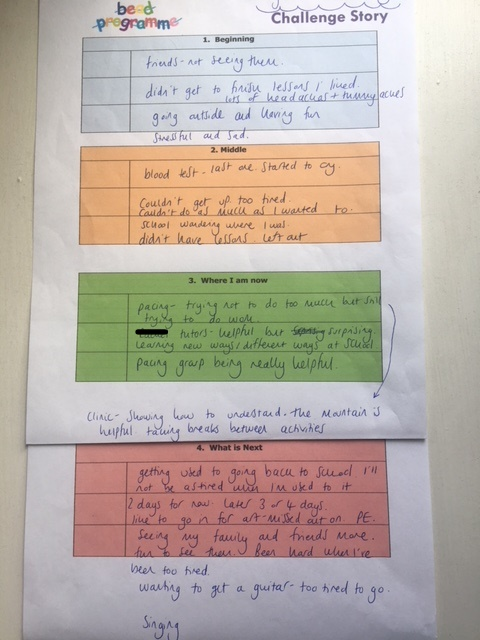 bead
programme
Challenge Story
1. Beginning
friends - not seeing them.
didn't get to finish lessons I liked.
lots of headaches + tummy aches
going outside and having fun
stressful and sad.
2. Middle
blood test - last one. started to cry.
Couldn't get up too tired.
Couldn't do as much as I wanted to.
School wondering where I was.
didn't have lessons. Left out
3. Where I am now
pacing - trying not to do too much but still
trying to do work.
tutors - helpful but surprising.
Learning new ways / different ways at school
Pacing group being really helpful.
Clinic - showing how to understand. the mountain is
helpful. taking breaks between activities
4. What is Next
getting used to going back to school. I'll
not be as tired when I'm used to it
2 days for now. Later 3 or 4 days.
like to go in for art - missed out on. PE.
Seeing my family and friends more.
fun to see them. Been hard when I've
been too tired.
wanting to get a guitar - too tired to go.
Singing